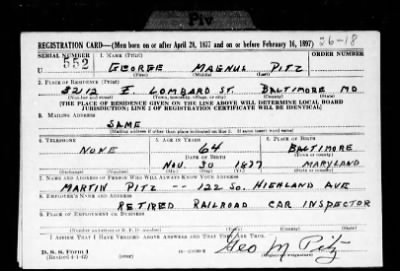 Piv
REGISTRATION CARD—(Men born on or after April 28, 1877 and on or before February 16, 1897)
26-18
SERIAL NUMBER
1. NAME (Print)
ORDER NUMBER
U 552
GEORGE MAGNUS PITZ
(First) (Middle) (Last)
2. PLACE OF RESIDENCE (Print)
3212 E LOMBARD ST. BALTIMORE MD
(Number and street) (Town, township, village, or city) (County) (State)
[THE PLACE OF RESIDENCE GIVEN ON THE LINE ABOVE WILL DETERMINE LOCAL BOARD
JURISDICTION; LINE 2 OF REGISTRATION CERTIFICATE WILL BE IDENTICAL]
3. MAILING ADDRESS
SAME
[Mailing address if other than place indicated on line 2. If same insert word same]
4. TELEPHONE
5. AGE IN YEARS
6. PLACE OF BIRTH
NONE
64
BALTIMORE
DATE OF BIRTH
(Town or county)
NOV. 30 1877
MARYLAND
(Exchange) (Number)
(Mo.) (Day) (Yr.)
(State or country)
7. NAME AND ADDRESS OF PERSON WHO WILL ALWAYS KNOW YOUR ADDRESS
MARTIN PITZ -- 122 SO. HIGHLAND AVE
8. EMPLOYER'S NAME AND ADDRESS
RETIRED RAILROAD CAR INSPECTOR
9. PLACE OF EMPLOYMENT OR BUSINESS
I AFFIRM THAT I HAVE VERIFIED ABOVE ANSWERS AND THAT THEY ARE TRUE.
D. S. S. Form 1
(Revised 4-1-42)
Geo M Pitz